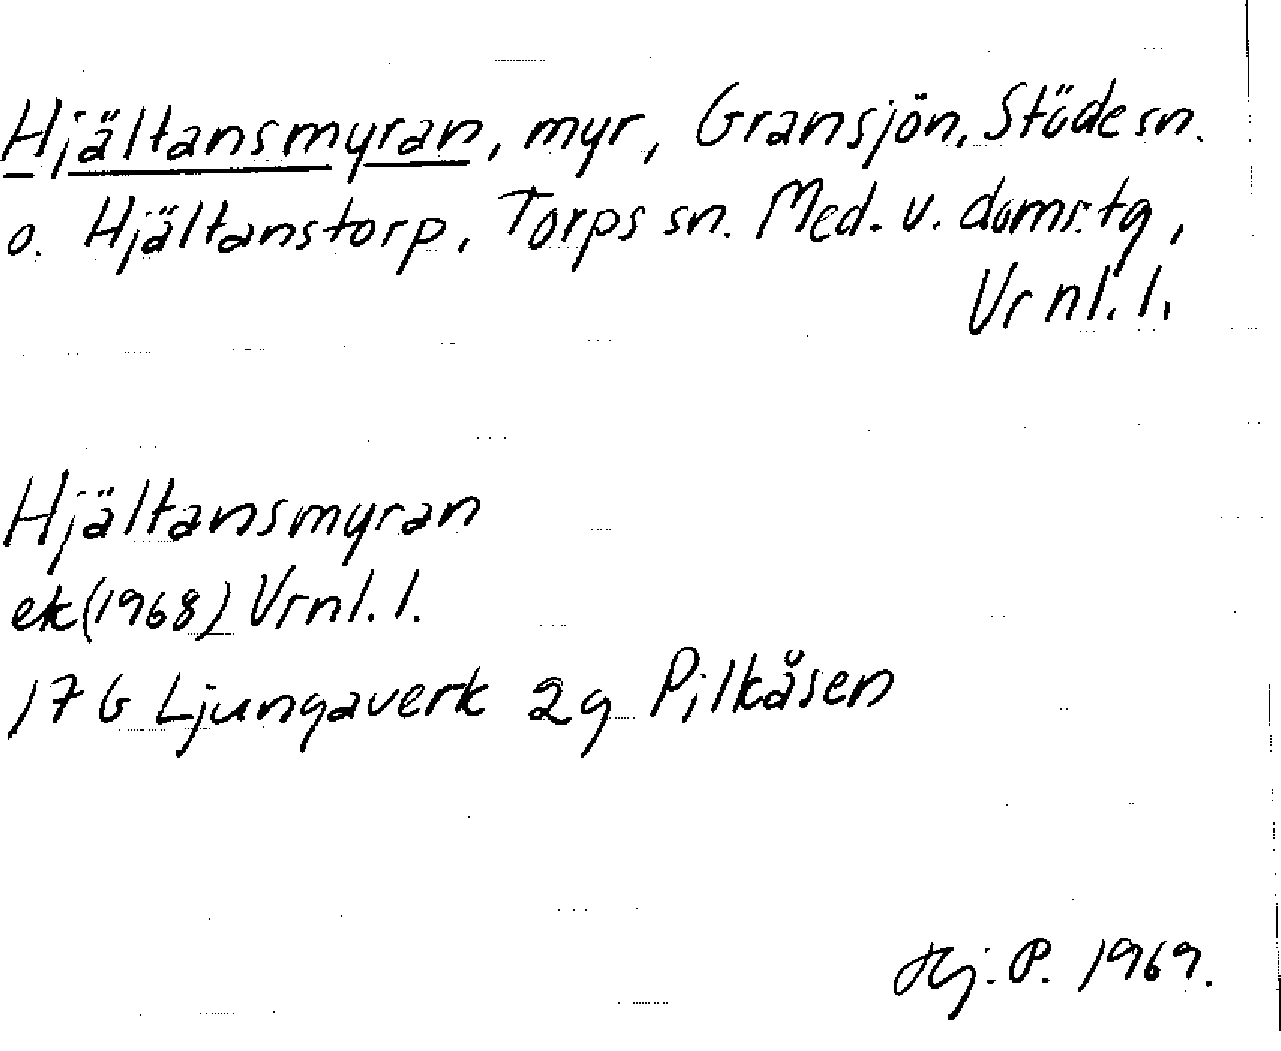 Hjältansmyran, myr, Gransjön, Stöde sn.
o. Hjältanstorp, Torps sn. Med. v. doms:tg,
Vrnl. l.
Hjältansmyran
ek(1968) Vrnl. l.
17 G Ljungaverk 2g Pilkåsen
Hj. P. 1969.